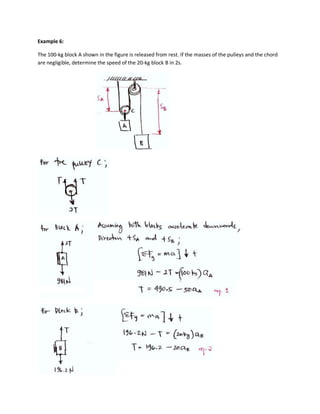 Example 6:
The 100-kg block A shown in the figure is released from rest. If the masses of the pulleys and the chord
are negligible, determine the speed of the 20-kg block B in 2s.
SA
SB
C
A
B
for the pulley C;
T T
2T
for Block A;
Assuming both blocks accelerate downwards,
Direction +SA and +SB;
2T
A
981N
[ΣFy = ma] ↓ +
981N - 2T = (100kg) aA
T = 490.5 - 50aA eq. 1
for block B;
T
B
196.2N
[ΣFy = ma] ↓ +
196.2N - T = (20kg) aB
T = 196.2 - 20aB eq. 2